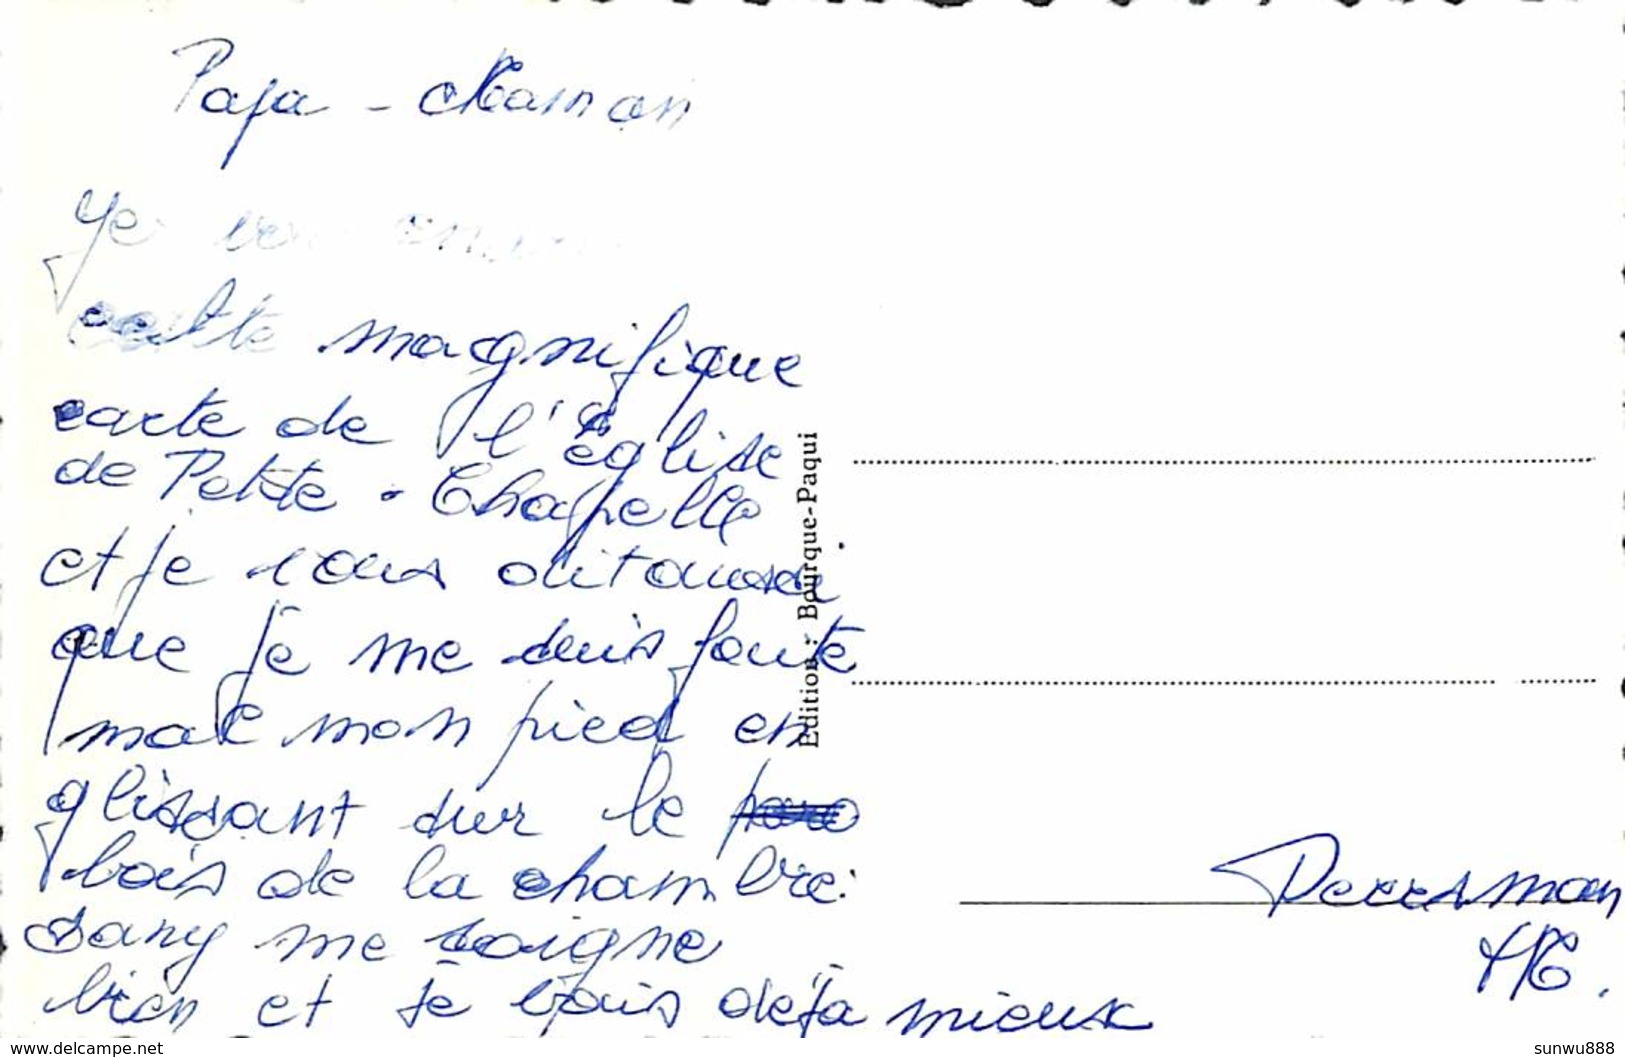 Papa - Maman
Je vous envoie
cette magnifique
carte de l'Église
de Petite - Chapelle
et je vous dit aussi
que je me suis foute
mal mon pied en
glissant sur le
bois de la chambre.
Dany me soigne
bien et je vais déja mieux
Edition : Bourque-Paqui
www.delcampe.net
sunwu888